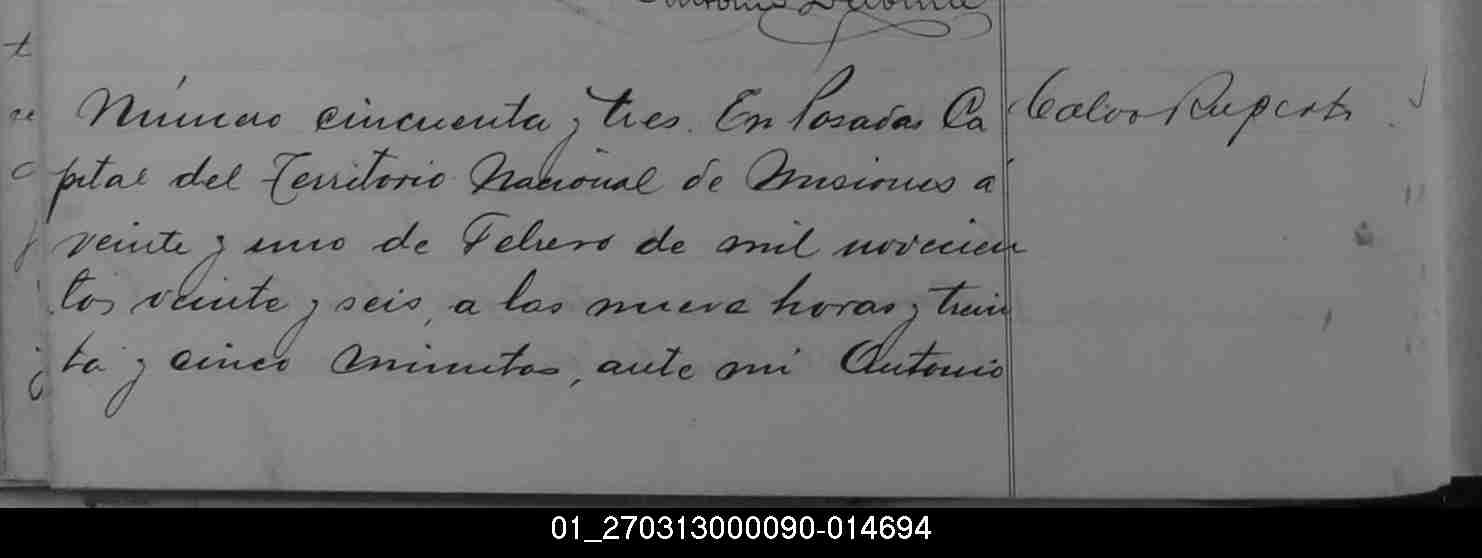 Antonio
Número cincuenta y tres. En Posadas Ca
pital del Territorio Nacional de Misiones a
veinte y uno de Febrero de mil novecien
tos veinte y seis, a las nueve horas y trein
ta y cinco minutos, ante mi Antonio
Calvo Ruperto
01_270313000090-014694